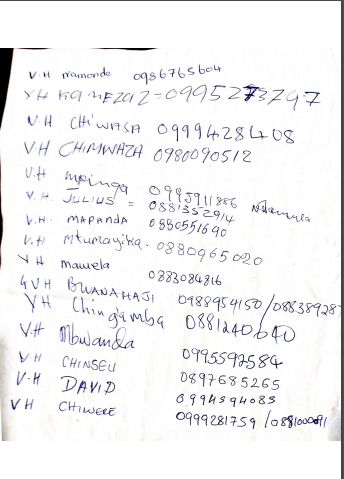 V.H Mamonde 0986765604
VH Kamezaz = 0995273797
VH CHIWASA 0999428408
VH CHIMWAZA 0980090512
V.H Mpinga 0995911886
V.H. JULIUS = 0881352914 Ndamula
V.H. MAPANDA 0880551690
V.H Mtumayika. 0880965020
VH Mawela 0883084816
GVH BWANAHAJI 0988954150 / 088389287
VH Chingamba 0881240040
V.H Mbwanda 0995592584
VH CHINSEU 0897685265
V.H DAVID 0994394083
VH CHIWERE 0999281759 / 0881000091